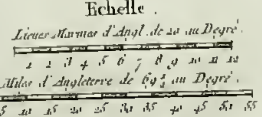 Echelle.
Lieues Marines d'Angl. de 20 au Degré.
1 2 3 4 5 6 7 8 9 10 11 12
Miles d'Angleterre de 69 1/2 au Degré.
5 10 15 20 25 30 35 40 45 50 55